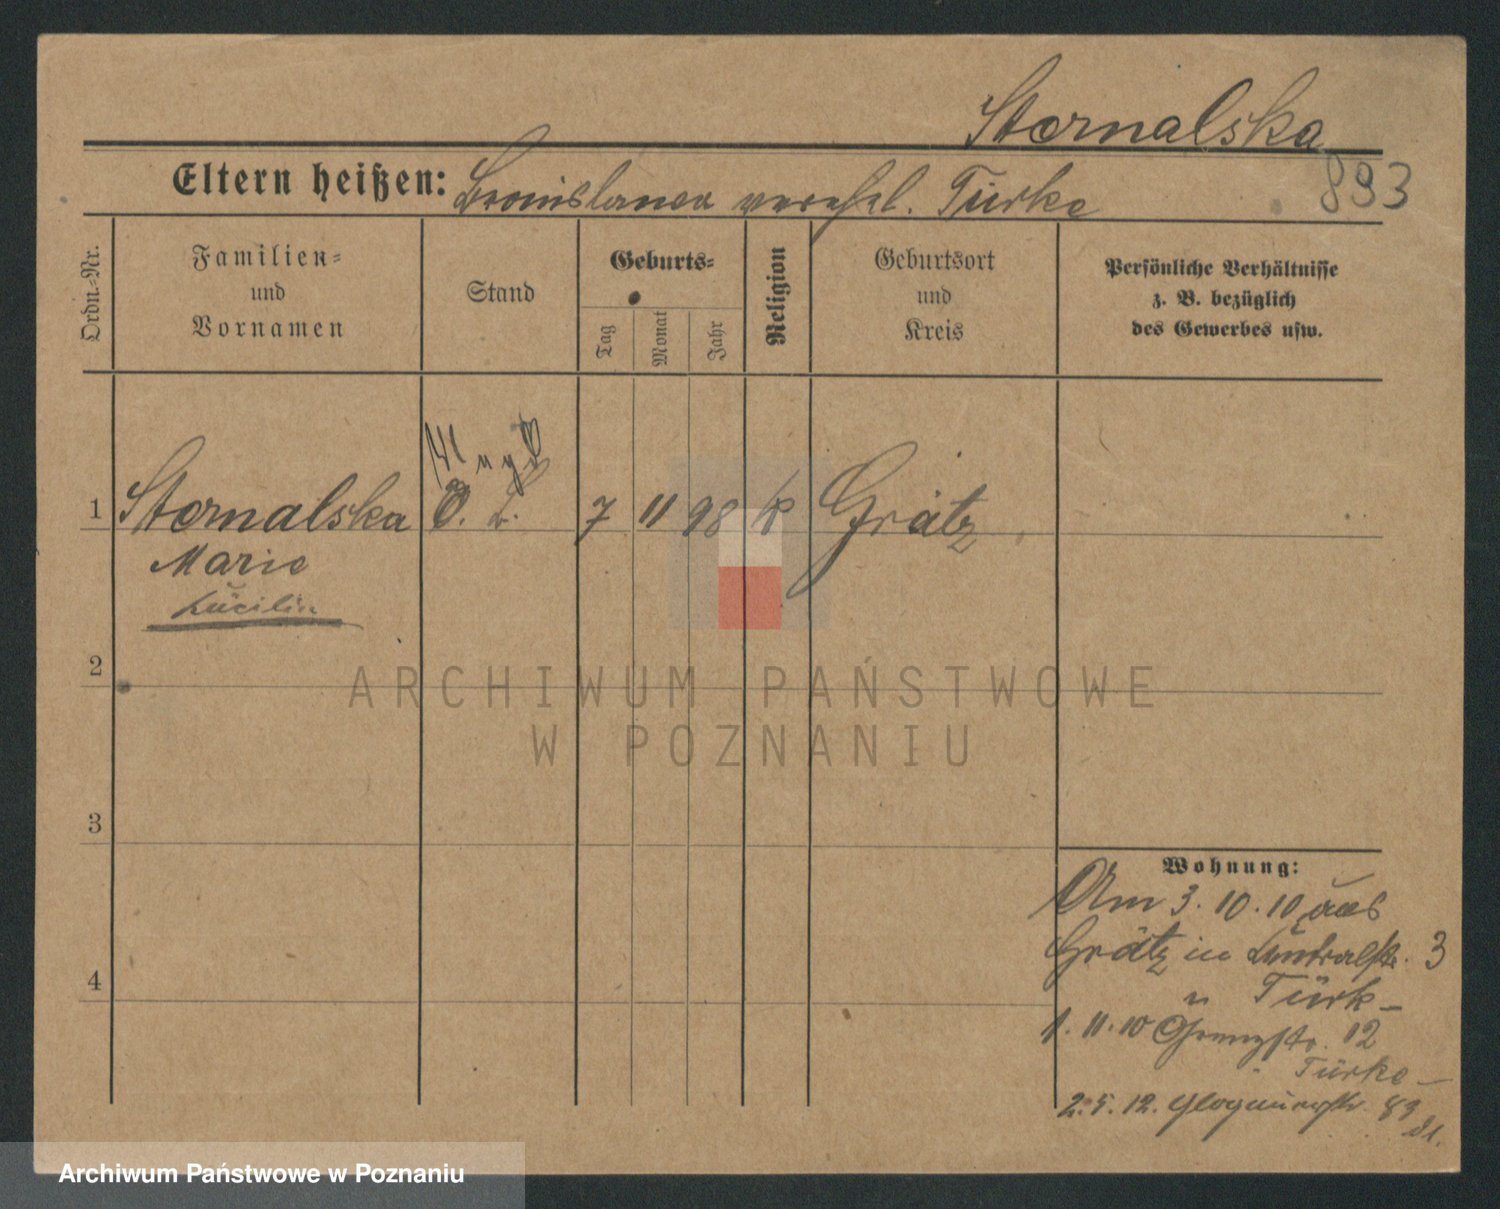 Stornalska
893
Eltern heißen: Bronislawa verehel. Türke
Ordn.-Nr.
Familien-
und
Vornamen
Stand
Geburts-
Tag
Monat
Jahr
Religion
Geburtsort
und
Kreis
Persönliche Verhältnisse
z. B. bezüglich
des Gewerbes usw.
1 Stornalska 7 11 98 k Grätz
Marie
2
3
4
Wohnung:
Am 3. 10. 10 aus
Grätz in 3
Türk-
1. 11. 10 Grenzstr. 12
Türke-
2. 5. 12. Glogauerstr. 89
ARCHIWUM PAŃSTWOWE
W POZNANIU
Archiwum Państwowe w Poznaniu